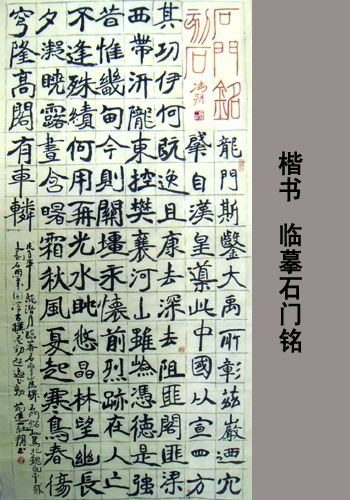 石門銘
刻石
龍門斯鑿大禹所彰茲巖迺穴
肇自漢皇導此中國以宣四方
其功伊何既逸且康去深去阻匪閣匪梁
西帶汧隴東控樊襄河山雖險憑德是強
昔惟畿甸今則關壃永懷前烈跡在人亡
不逢殊績何用再光水眺悠晶林望幽長
夕凝曉露晝含曙霜秋風夏起寒鳥春傷
穹隆高閣有車轔
楷书 临摹石门铭